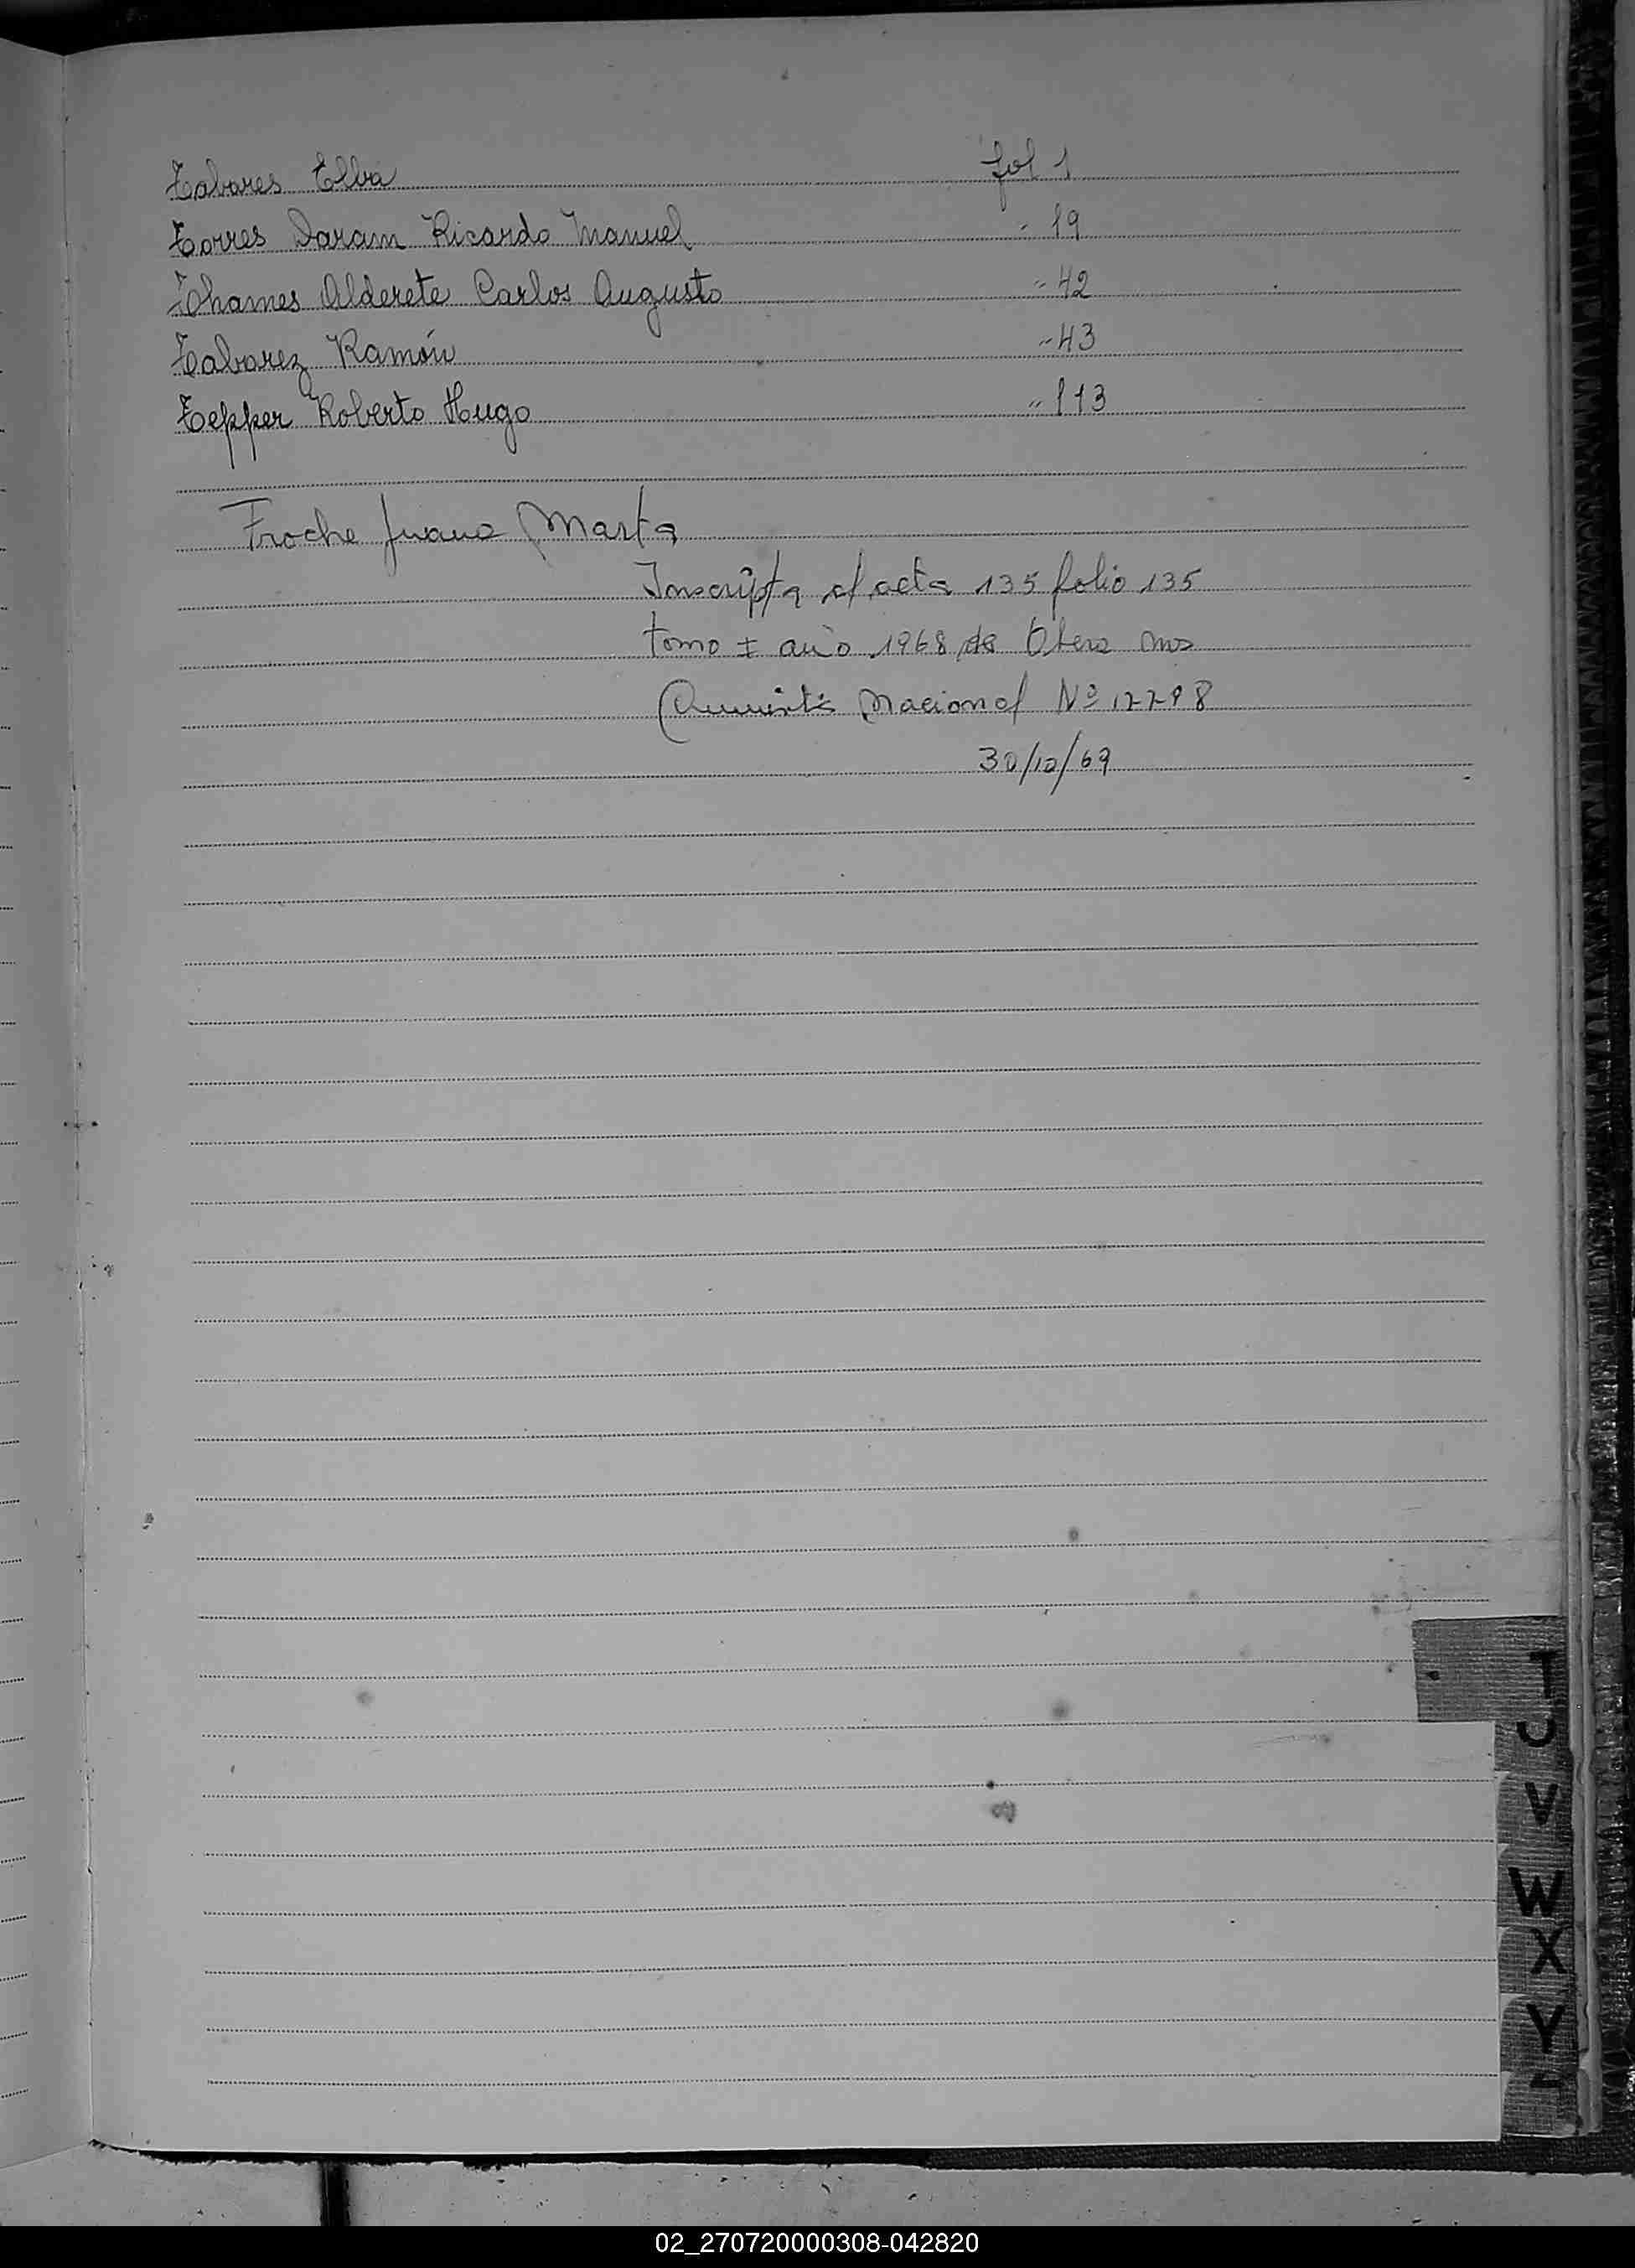 Tabares Elba fol 1
Torres Daram Ricardo Manuel " 19
Thames Alderete Carlos Augusto " 42
Tabarez Ramón " 43
Tepper Roberto Hugo " 113
Troche Juana Marta
Inscripta al acta 135 folio 135
tomo I año 1968 de Obera Mns
Amnistía Nacional Nº 17798
30/10/69
T
U
V
W
X
Y
02_270720000308-042820